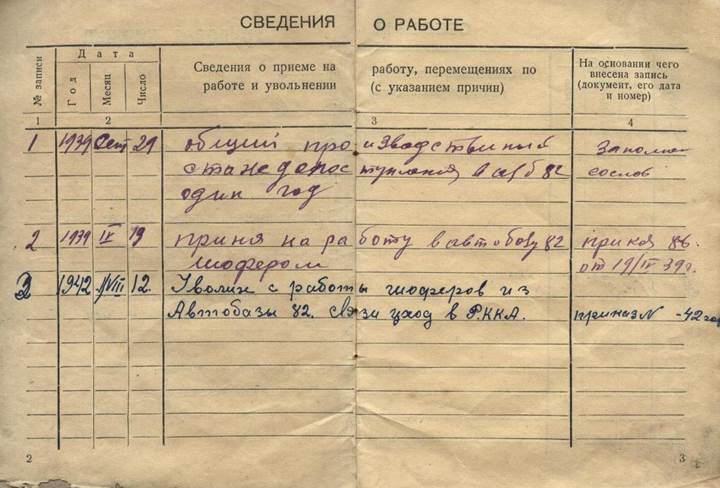 СВЕДЕНИЯ О РАБОТЕ
№ записи
Дата
Год
Месяц
Число
Сведения о приеме на работу, перемещениях по
работе и увольнении (с указанием причин)
На основании чего
внесена запись
(документ, его дата
и номер)
1 2 3 4
1 1939 Сент 29 общий производственный
стаж до поступления в 82
один год
Заполнен
со слов
2 1939 IX 19 приня на работу в автобазу 82
шофером
приказ 86.
от 19/IX 39г.
3 1942 VIII 12. Уволин с работы шофером из
Автобазы 82. связи уход в Р.К.К.А.
приказ N -42 год
2
3